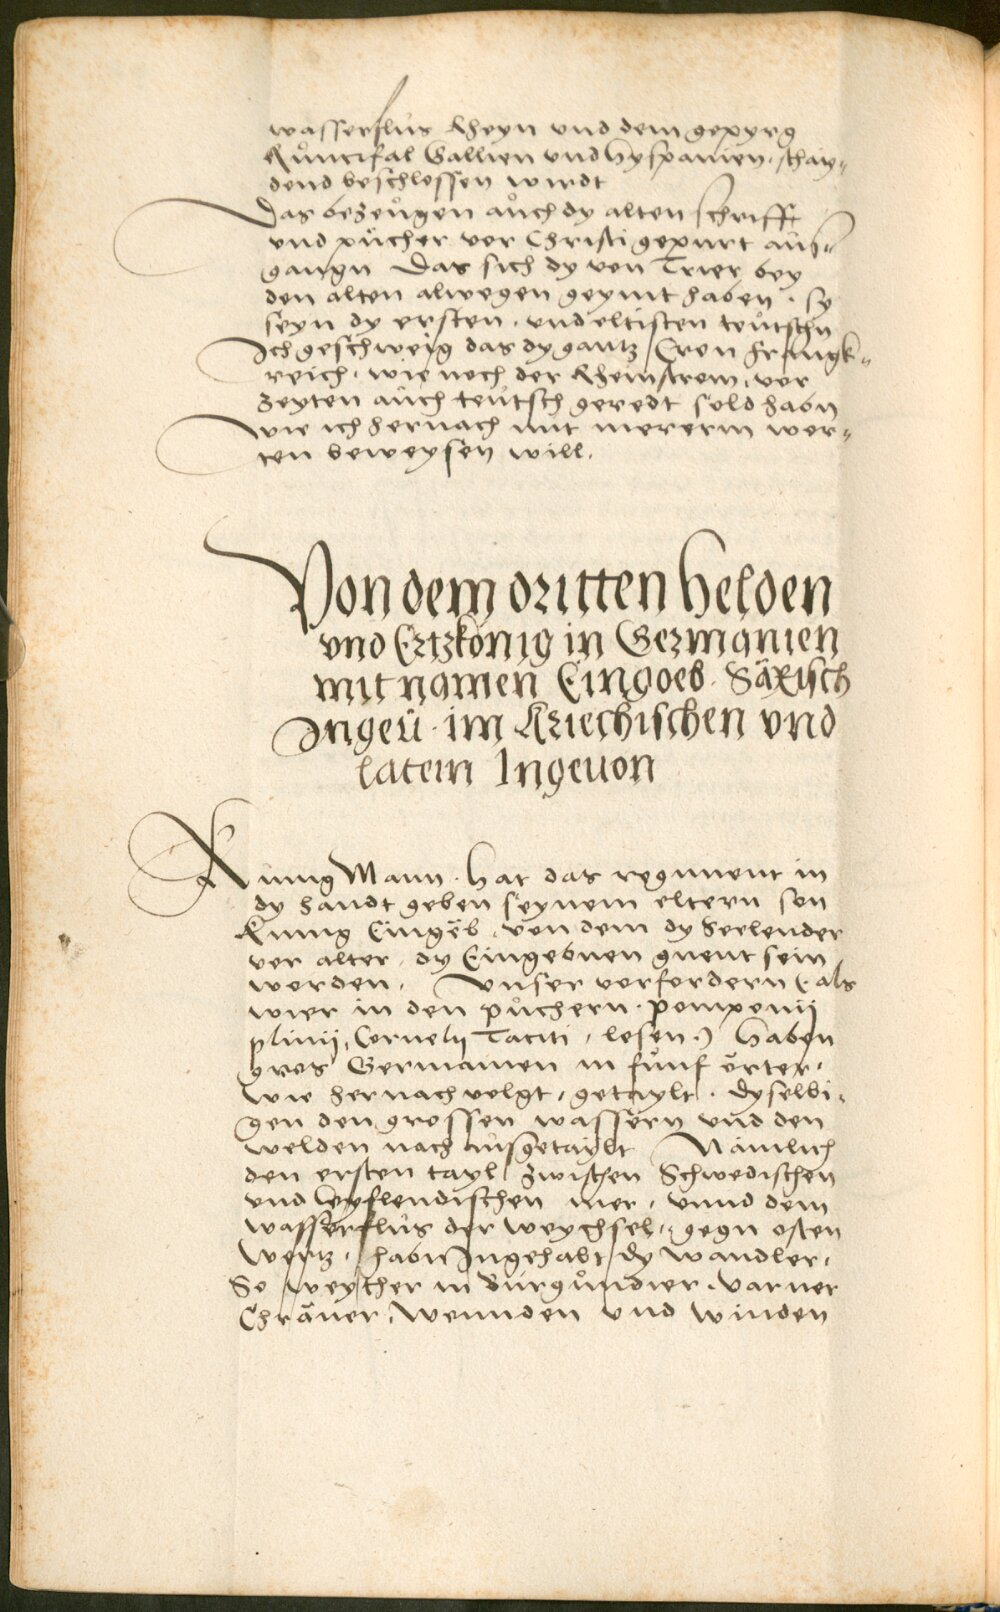 wasserflus Rheyn vnd dem gepyrg
Růncifal Gallien vnd hyspanien, schay⸗
dend beschlossen wirdt
Das bezeůgen aůch dy alten schrifft
vnd pücher vor Christi gepurt aůs⸗
gangn Das sich dy von Trier bey
den alten alwegen geymt haben, sy
seyn dy ersten, vnd eltisten teůtschn
Ich geschweig das dy gantz Cron Frangk⸗
reich, wie noch der Rheinstrom, vor
zeyten aůch teůtsch geredt sold habn
wie ich hernach mit mererm wor⸗
ten beweysen will.
Von dem dritten helden
vnd Ertzkönig in Germanien
mit namen Eingoeb Säxisch
Ingeü im Kriechischen vnd
latein Ingeuon
Kunig Mann, hat das regiment in
dy handt geben seynem eltern son
Kunig Eingëb, von dem dy Seelender
vor alter, dy Eingebnen gnent sein
worden. Vnser vorfordern (als
wier in den půchern Pomponij
plinij, Cornelij Taciti, lesen.) haben
gros Germanien in fůnf örter,
wie hernach volgt, getaylt. dyselbi⸗
gen den grossen wassern vnd den
welden nach aůsgetaylt Nämlich
den ersten tayl zwischen Schwedischen
vnd leyflendischen mer, vnnd dem
wasserflus der weychsel, gegn osten
wertz, habn Ingehabt dy wandler,
So weyther in Bůrgůndier, Varner
Chräner, wennden vnd winden